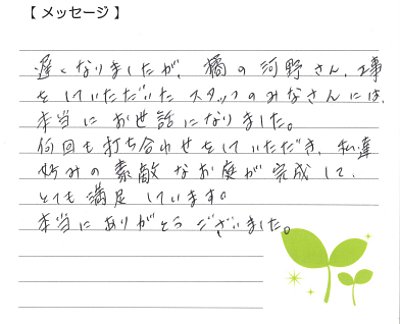 【メッセージ】
遅くなりましたが、橘の河野さん、工事
をしていただいたスタッフのみなさんには、
本当にお世話になりました。
何回も打ち合わせをしていただき、私達
好みの素敵なお庭が完成して、
とても満足しています。
本当にありがとうございました。